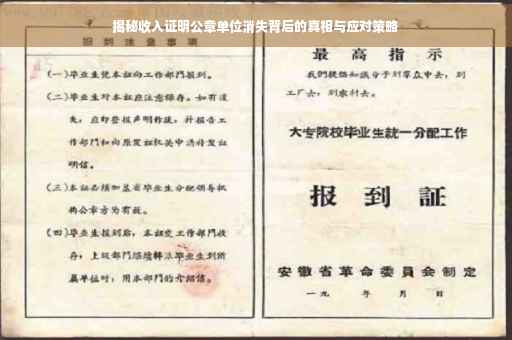 揭秘收入证明公章单位消失背后的真相与应对策略
报到注意事项
(一)毕业生凭本证向工作部门报到。
(二)毕业生对本证应注意保存。如有遗
失，应即登报声明作废，并报告工
作部门和向原发证机关申请补发证
明信。
(三)本证必须加盖省毕业生分配领导机
构公章方为有效。
(四)毕业生报到后，本证交工作部门收
存；上级部门
属单位时，用本部门的介绍信。
最高指示
我们提倡知识分子到群众中去，到
工厂去，到农村去。
大专院校毕业生統一分配工作
报到証
安徽省革命委員会制定
一九 年 月 日